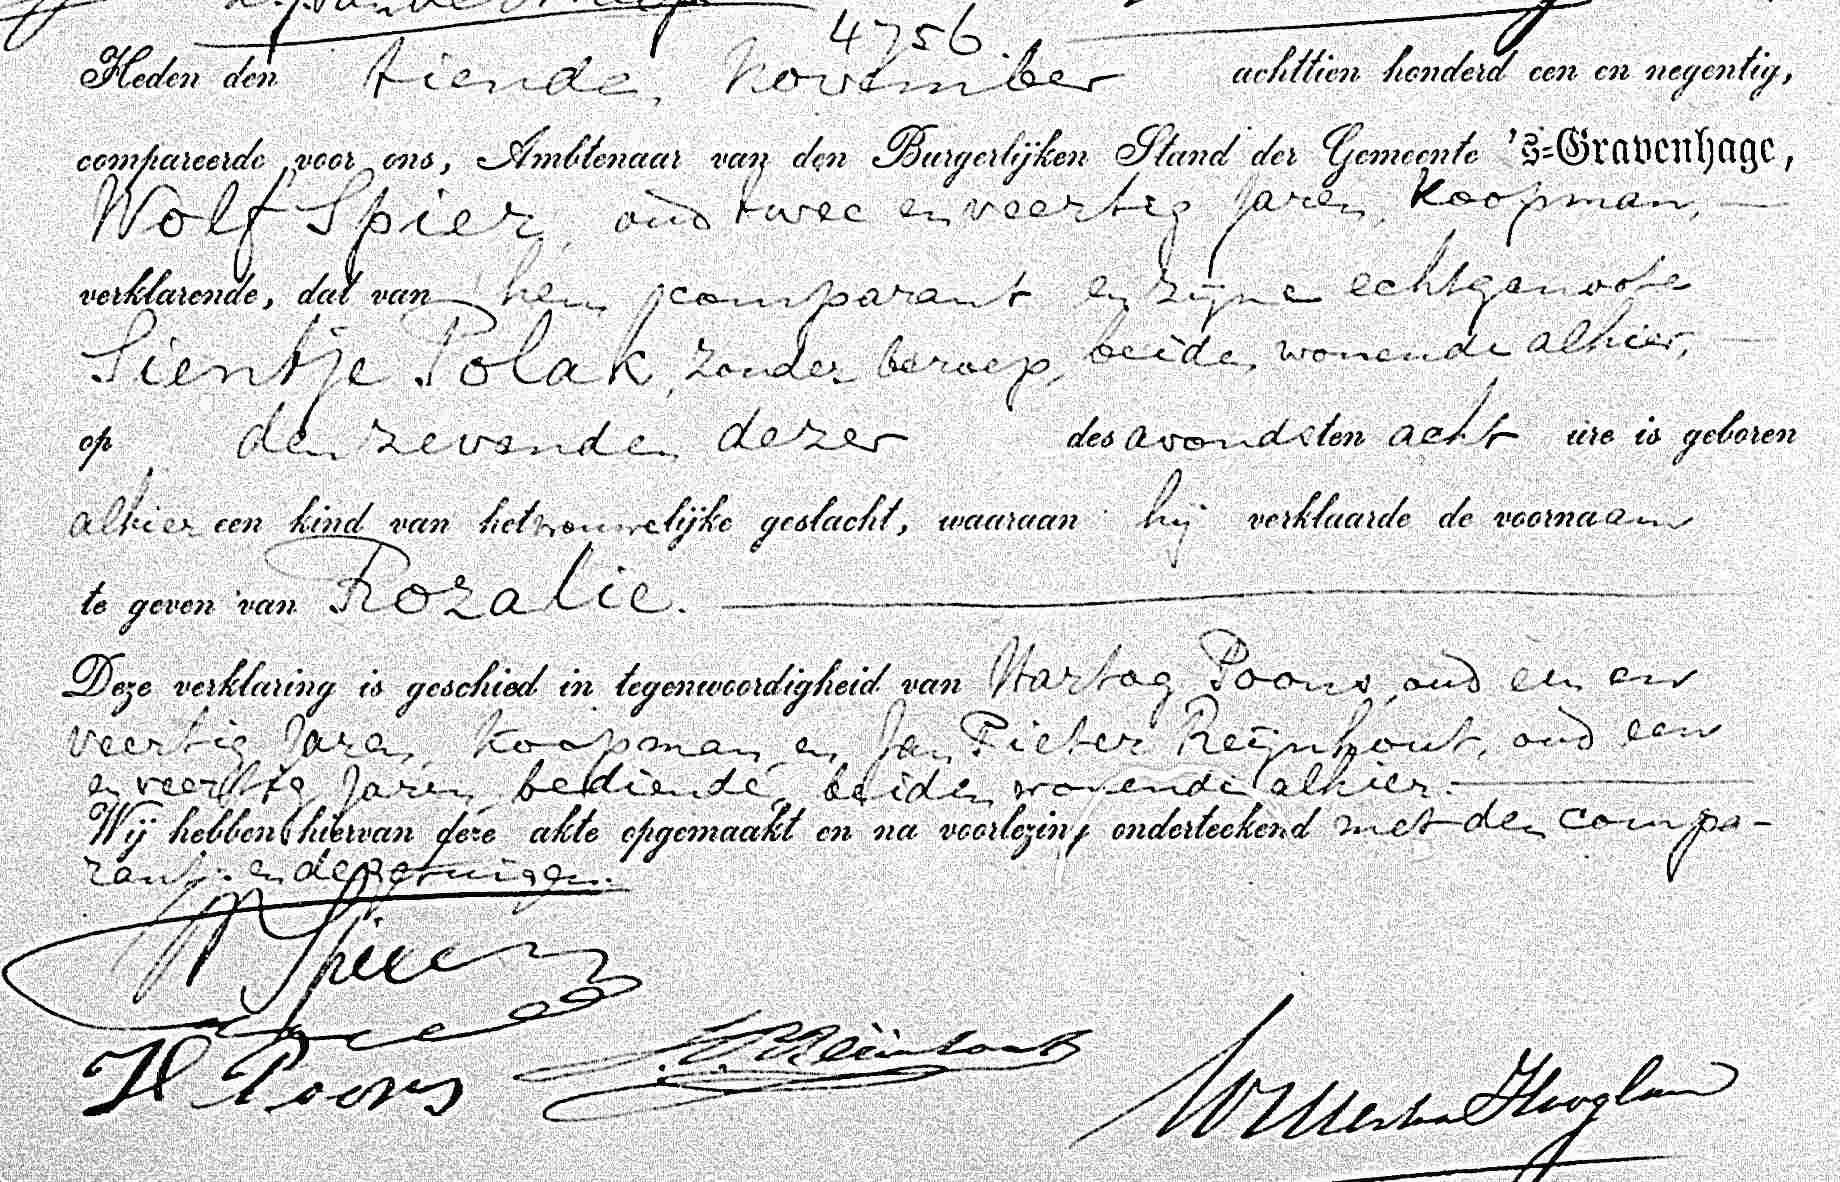 4756.
Heden den tienden November achttien honderd een en negentig,
compareerde voor ons, Ambtenaar van den Burgerlijken Stand der Gemeente 's-Gravenhage,
Wolf Spier, oud twee en veertig jaren, Koopman, —
verklarende, dat van hem comparant en zijne echtgenoote
Sientje Polak, zonder beroep, beiden wonende alhier, —
op den zevenden dezer des avonds ten acht ure is geboren
alhier een kind van het vrouwelijke geslacht, waaraan hij verklaarde de voornaam
te geven van Rozalie. —
Deze verklaring is geschied in tegenwoordigheid van Hartog Poons, oud een en
veertig jaren, Koopman, en Jan Pieter Reijnhout, oud een
en veertig jaren, bediende, beiden wonende alhier. —
Wij hebben hiervan deze akte opgemaakt en na voorlezing onderteekend met den compa-
rant en de getuigen.
W Spier
H Poons J. P. Reijnhout